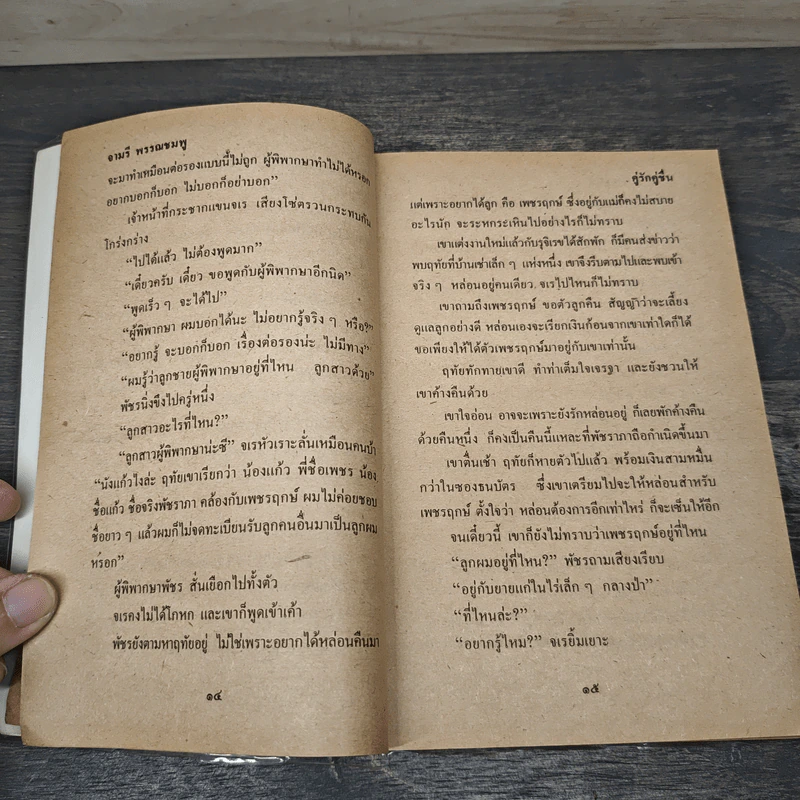 จามรี พรรณชมพู
จะมาทำเหมือนต่อรองแบบนี้ไม่ถูก ผู้พิพากษาทำไม่ได้หรอก
อยากบอกก็บอก ไม่บอกก็อย่าบอก”
เจ้าหน้าที่กระชากแขนจเร เสียงโซ่ตรวนกระทบกัน
โกร่งกร่าง
“ไปได้แล้ว ไม่ต้องพูดมาก”
“เดี๋ยวครับ เดี๋ยว ขอพูดกับผู้พิพากษาอีกนิด”
“พูดเร็ว ๆ จะได้ไป”
“ผู้พิพากษา ผมบอกได้นะ ไม่อยากรู้จริง ๆ หรือ?”
“อยากรู้ จะบอกก็บอก เรื่องต่อรองน่ะ ไม่มีทาง”
“ผมรู้ว่าลูกชายผู้พิพากษาอยู่ที่ไหน ลูกสาวด้วย”
พัชรนิ่งขึงไปครู่หนึ่ง
“ลูกสาวอะไรที่ไหน?”
“ลูกสาวผู้พิพากษาน่ะซี” จเรหัวเราะลั่นเหมือนคนบ้า
“นังแก้วไงล่ะ ฤทัยเขาเรียกว่า น้องแก้ว พี่ชื่อเพชร น้อง
ชื่อแก้ว ชื่อจริงพัชราภา คล้องกับเพชรฤกษ์ ผมไม่ค่อยชอบ
ชื่อยาว ๆ แล้วผมก็ไม่จดทะเบียนรับลูกคนอื่นมาเป็นลูกผม
หรอก”
ผู้พิพากษาพัชร สั่นเยือกไปทั้งตัว
จเรคงไม่ได้โกหก และเขาก็พูดเข้าเค้า
พัชรยังตามหาฤทัยอยู่ ไม่ใช่เพราะอยากได้หล่อนคืนมา
๑๔
คู่รักคู่ชื่น
แต่เพราะอยากได้ลูก คือ เพชรฤกษ์ ซึ่งอยู่กับแม่ก็คงไม่สบาย
อะไรนัก จะระหกระเหินไปอย่างไรก็ไม่ทราบ
เขาแต่งงานใหม่แล้วกับรุจิเรขได้สักพัก ก็มีคนส่งข่าวว่า
พบฤทัยที่บ้านเช่าเล็ก ๆ แห่งหนึ่ง เขาจึงรีบตามไปและพบเข้า
จริง ๆ หล่อนอยู่คนเดียว จเรไปไหนก็ไม่ทราบ
เขาถามถึงเพชรฤกษ์ ขอตัวลูกคืน สัญญาว่าจะเลี้ยง
ดูแลลูกอย่างดี หล่อนเองจะเรียกเงินก้อนจากเขาเท่าใดก็ได้
ขอเพียงให้ได้ตัวเพชรฤกษ์มาอยู่กับเขาเท่านั้น
ฤทัยทักทายเขาดี ทำท่าเต็มใจเจรจา และยังชวนให้
เขาค้างคืนด้วย
เขาใจอ่อน อาจจะเพราะยังรักหล่อนอยู่ ก็เลยพักค้างคืน
ด้วยคืนหนึ่ง ก็คงเป็นคืนนี้แหละที่พัชราภาถือกำเนิดขึ้นมา
เขาตื่นเช้า ฤทัยก็หายตัวไปแล้ว พร้อมเงินสามหมื่น
กว่าในซองธนบัตร ซึ่งเขาเตรียมไปจะให้หล่อนสำหรับ
เพชรฤกษ์ ตั้งใจว่า หล่อนต้องการอีกเท่าไหร่ ก็จะเซ็นให้อีก
จนเดี๋ยวนี้ เขาก็ยังไม่ทราบว่าเพชรฤกษ์อยู่ที่ไหน
“ลูกผมอยู่ที่ไหน?” พัชรถามเสียงเรียบ
“อยู่กับยายแก่ในไร่เล็ก ๆ กลางป่า”
“ที่ไหนล่ะ?”
“อยากรู้ไหม?” จเรยิ้มเยาะ
๑๕